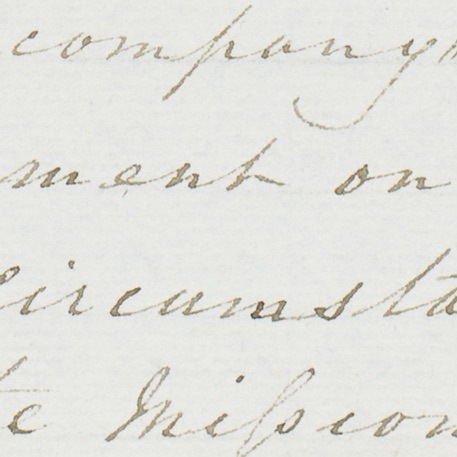 company
ment on
circumsta
te Miſsion